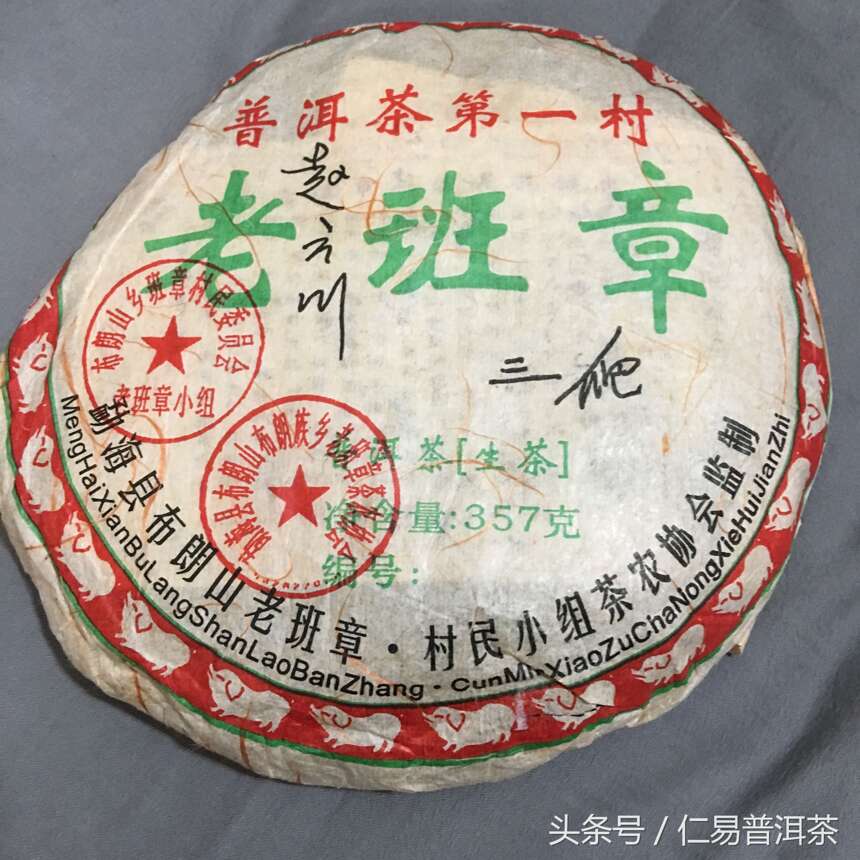 普洱茶第一村
老班章
赵六川
三爬
布朗山乡班章村民委员会
老班章小组
勐海县布朗山布朗族乡老班章茶
普洱茶[生茶]
净含量:357克
编号:
勐海县布朗山老班章·村民小组茶农协会监制
MengHaiXianBuLangShanLaoBanZhang·CunMinXiaoZuChaNongXieHuiJianZhi
头条号 / 仁易普洱茶